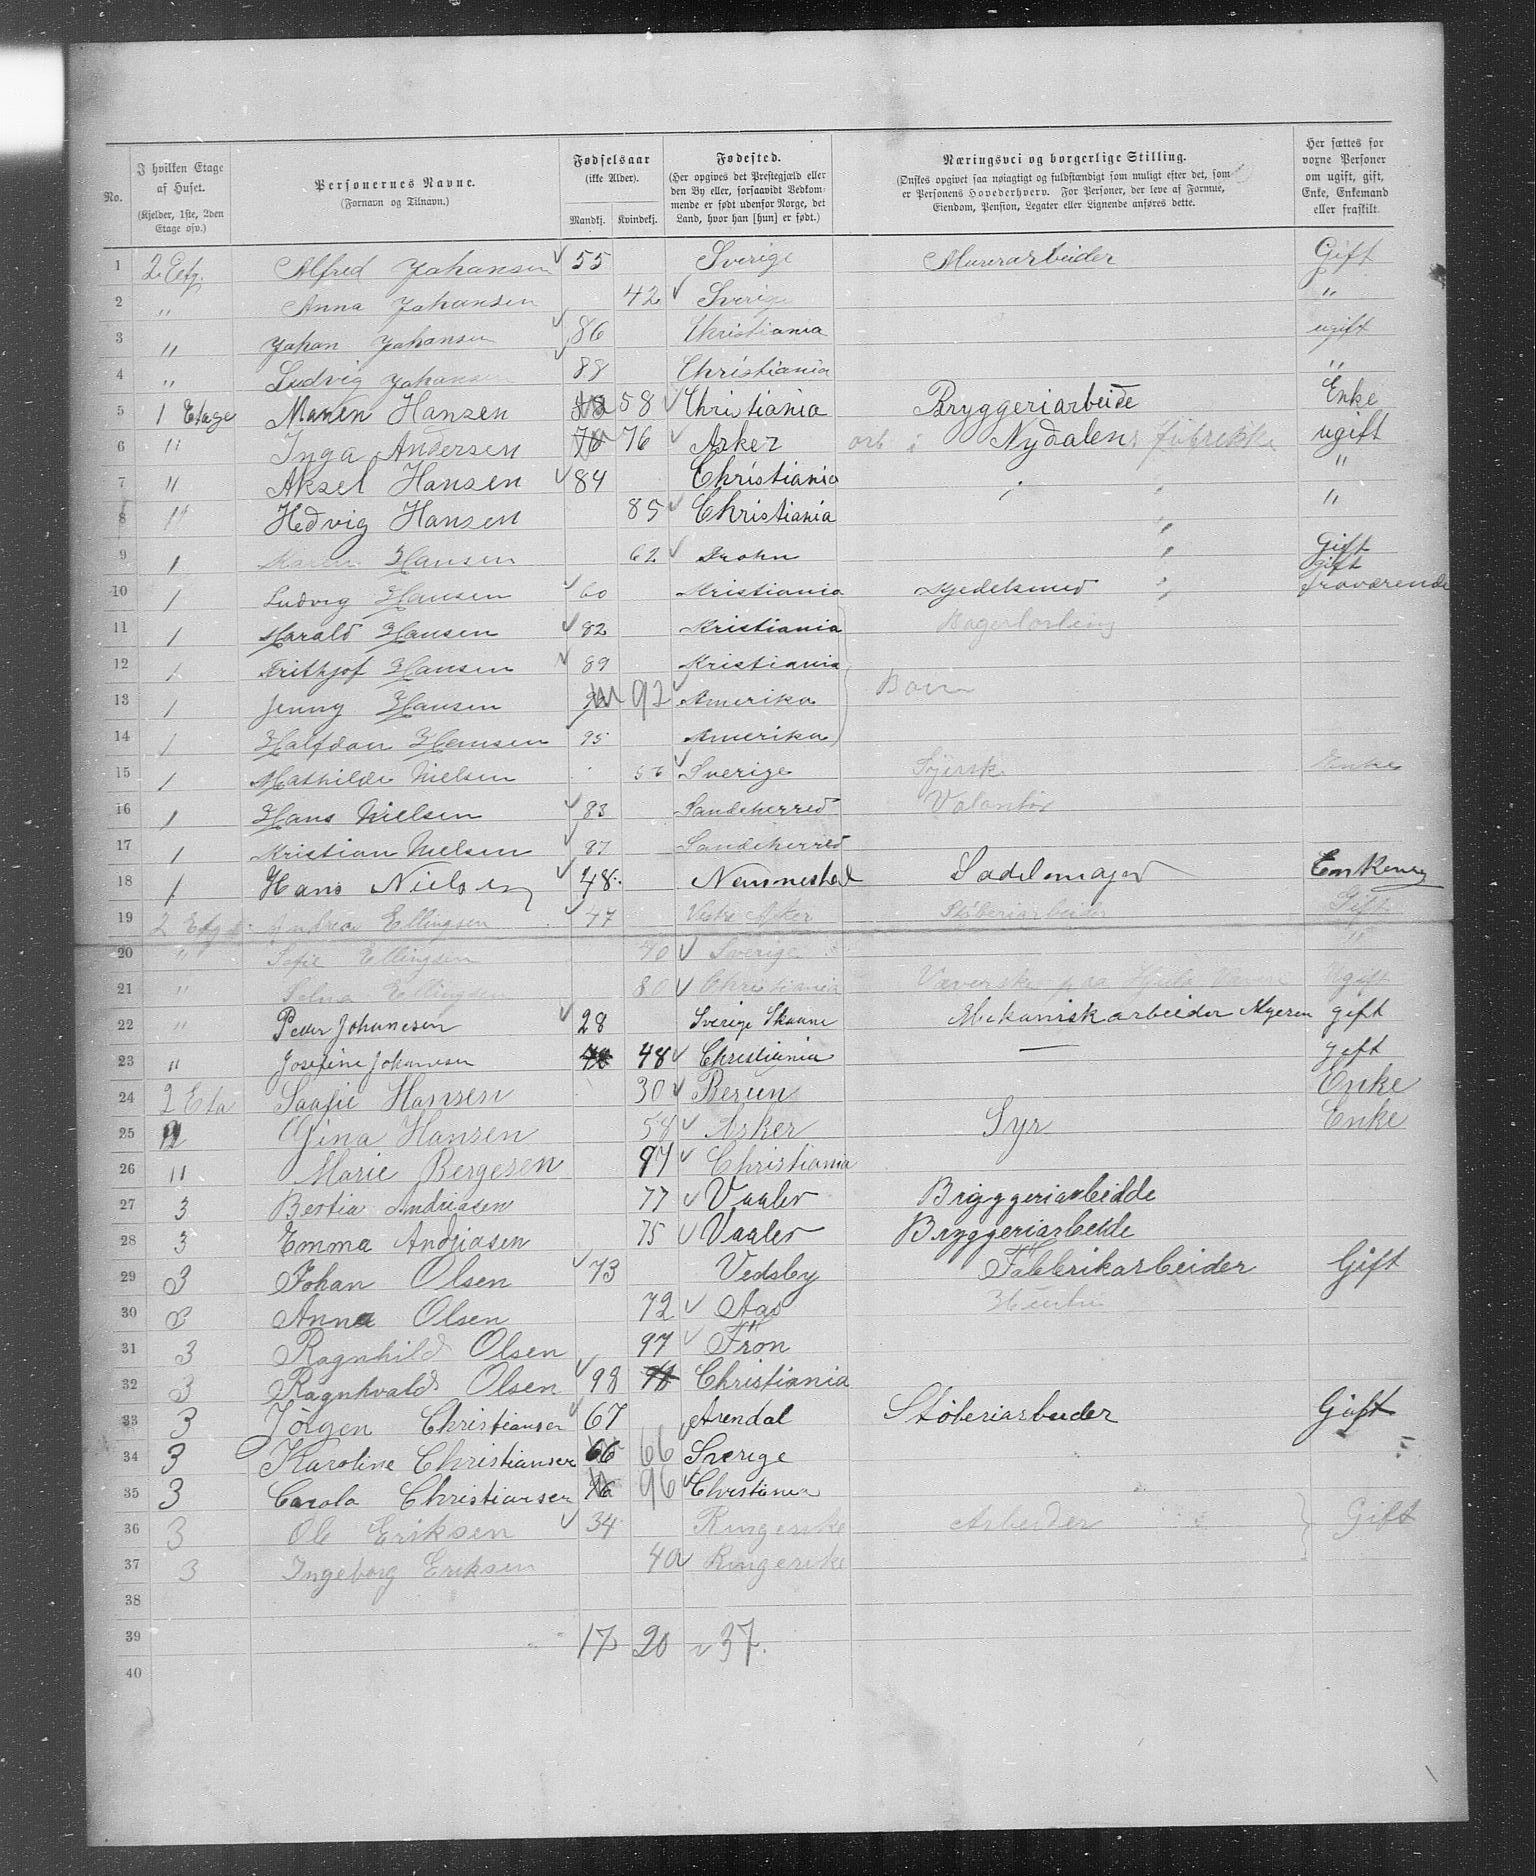 No.
I hvilken Etage af Huset. (Kjelder, 1ste, 2den Etage osv.)
Personernes Navne. (Fornavn og Tilnavn.)
Fødselsaar (ikke Alder). Mandkj. Kvindekj.
Fødested. (Her opgives det Prestegjæld eller den By eller, forsaavidt Vedkommende er født udenfor Norge, det Land, hvor han [hun] er født.)
Næringsvei og borgerlige Stilling. (Ønskes opgivet saa nøiagtigt og fuldstændigt som muligt efter det, som er Personens Hovederhverv. For Personer, der leve af Formue, Eiendom, Pension, Legater eller Lignende anføres dette.
Her sættes for voxne Personer om ugift, gift, Enke, Enkemand eller fraskilt.
1 2 Etg. Alfred Johansen 55 Sverige Murerarbeider Gift
2 " Anna Johansen 42 Sverige "
3 " Johan Johansen 86 Christiania ugift
4 " Ludvig Johansen 88 Christiania "
5 1 Etage Maren Hansen 58 Christiania Bryggeriarbeide Enke
6 " Inga Andersen 76 76 Asker arb i Nydalens fabrikke ugift
7 " Aksel Hansen 84 Christiania " "
8 " Hedvig Hansen 85 Christiania " "
9 1 Karen Hansen 62 " Gift
10 1 Ludvig Hansen 60 Kristiania Kjedelsmed " gift fraværende
11 1 Harald Hansen 82 Kristiania
12 1 Frithjof Hansen 89 Kristiania
13 1 Jenny Hansen 92 Amerika Børn
14 1 Halfdan Hansen 95 Amerika
15 1 Mathilde Nielsen 56 Sverige Syersk Enke
16 1 Hans Nielsen 83 Sandeherred Volontør
17 1 Kristian Nielsen 87 Sandeherred
18 1 Hans Nielsen 48 Sadelmager
19 2 Etg Andrea Ellingsen 47 Vestre Aker Støberiarbeider Gift
20 " Sofie Ellingsen 40 Sverige "
21 " Selma Ellingsen 80 Christiania Væverske paa Hjula Ugift
22 " Peter Johanesen 28 Sverige Skaane Mekanisk arbeider Myeren gift
23 " Josefine Johannesen 48 Christiania — gift
24 2 Eta Saafie Hansen 30 Berun Enke
25 Gina Hansen 58 Asker Syr Enke
26 " Marie Bergesen 97 Christiania
27 3 Bertia Andriasen 77 Vaaler Bryggeriarbeidde
28 3 Emma Andriasen 75 Vaaler Bryggeriarbeidde
29 3 Johan Olsen 73 Vedsby Fabbrikarbeider Gift
30 3 Anna Olsen 72 Aas Hustru
31 3 Ragnhild Olsen 97 Frön
32 3 Ragnhvald Olsen 98 98 Christiania
33 3 Jörgen Christiansen 67 Arendal Støberiarbeider Gift
34 3 Karoline Christiansen 66 66 Sverige "
35 3 Carola Christiansen 96 96 Christiania
36 3 Ole Eriksen 34 Ringerike Arbeider Gift
37 3 Ingeborg Eriksen 40 Ringerike
38
39 17 20 37.
40